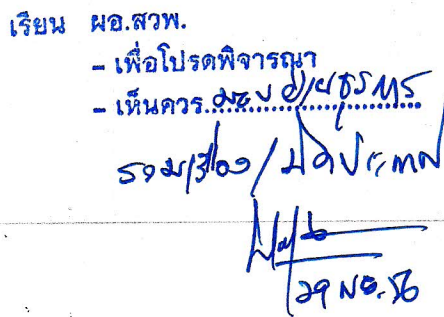 เรียน ผอ.สวพ.
- เพื่อโปรดพิจารณา
- เห็นควร มอบ ฝ่ายธุรการ
รวมเรื่อง / ปิดประกาศ
29 พย. 56